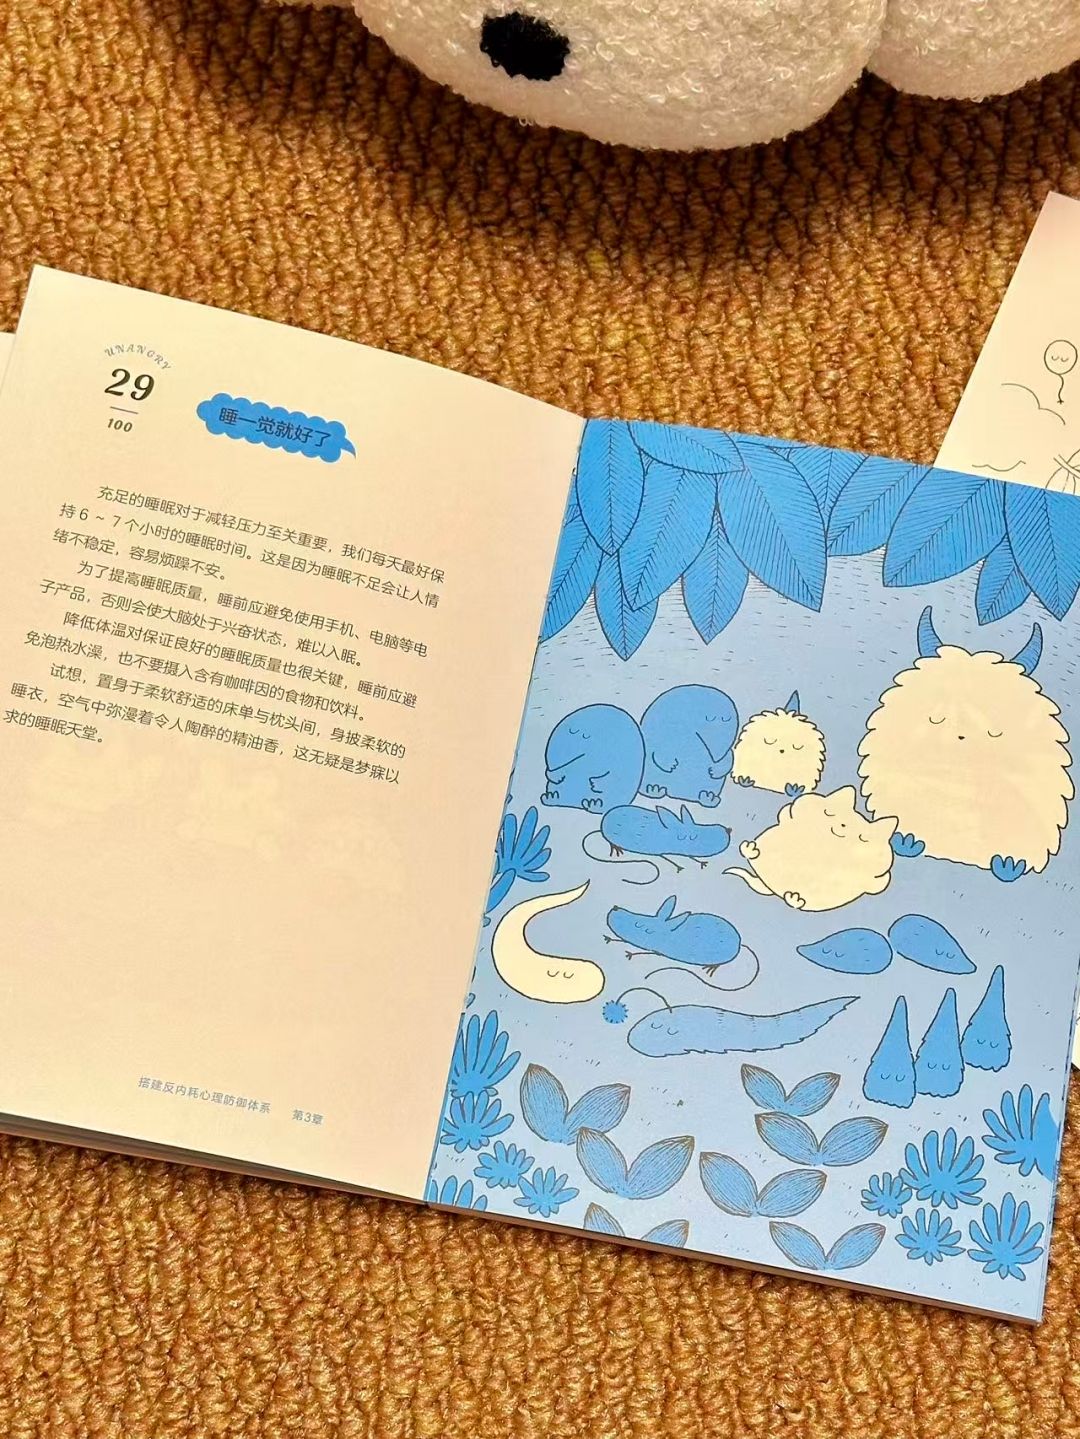 UNANGRY
29
100
睡一觉就好了
充足的睡眠对于减轻压力至关重要，我们每天最好保
持 6 ~ 7 个小时的睡眠时间。这是因为睡眠不足会让人情
绪不稳定，容易烦躁不安。
为了提高睡眠质量，睡前应避免使用手机、电脑等电
子产品，否则会使大脑处于兴奋状态，难以入眠。
降低体温对保证良好的睡眠质量也很关键，睡前应避
免泡热水澡，也不要摄入含有咖啡因的食物和饮料。
试想，置身于柔软舒适的床单与枕头间，身披柔软的
睡衣，空气中弥漫着令人陶醉的精油香，这无疑是梦寐以
求的睡眠天堂。
搭建反内耗心理防御体系 第3章